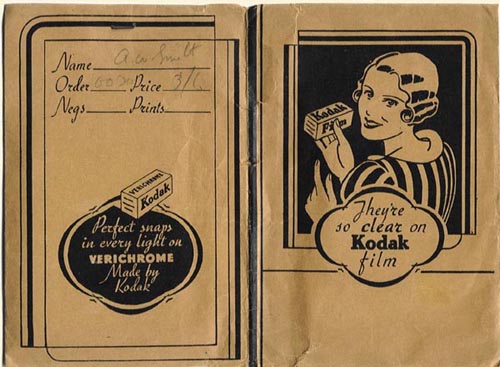 Name A W Smith
Order Price 3/6
Negs Prints
VERICHROME
Kodak
Perfect snaps
in every light on
VERICHROME
Made by
Kodak
Kodak
Film
They're
so clear on
Kodak
film